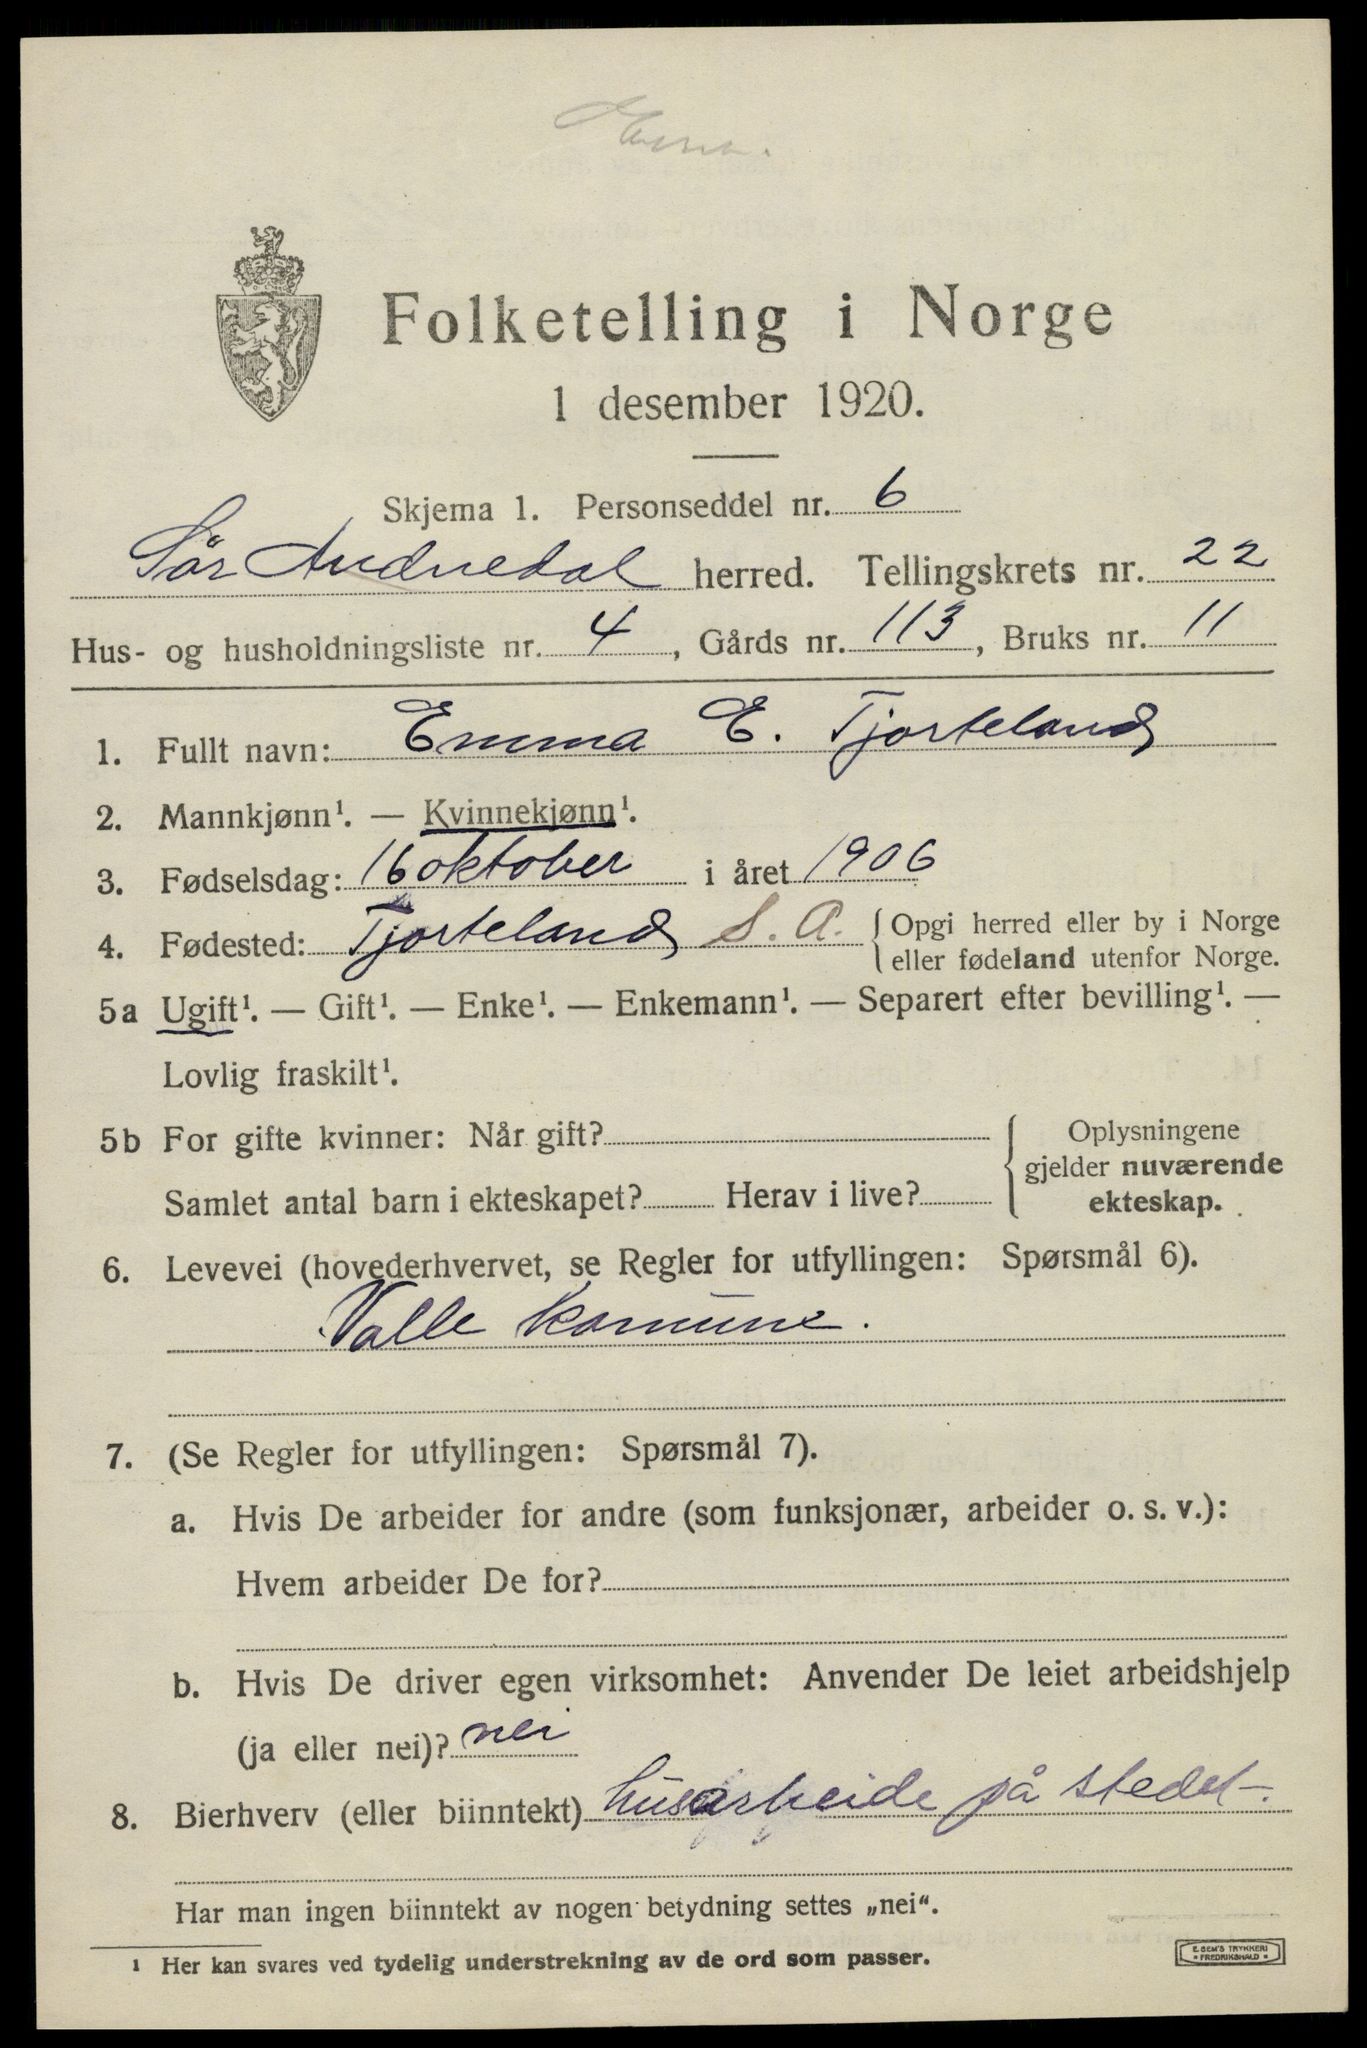 Folketelling i Norge
1 desember 1920.
Skjema 1. Personseddel nr. 6
Sör Audnedal herred. Tellingskrets nr. 22
Hus- og husholdningsliste nr. 4, Gårds nr. 113, Bruks nr. 11
1. Fullt navn: Emma E. Tjorteland
2. Mannkjønn¹. — Kvinnekjønn¹.
3. Fødselsdag: 16 oktober i året 1906
4. Fødested: Tjorteland S. A. { Opgi herred eller by i Norge
eller fødeland utenfor Norge.
5a Ugift¹. — Gift¹. — Enke¹. — Enkemann¹. — Separert efter bevilling¹. —
Lovlig fraskilt¹.
5b For gifte kvinner: Når gift?
Samlet antal barn i ekteskapet? Herav i live?
{ Oplysningene
gjelder nuværende
ekteskap.
6. Levevei (hovederhvervet, se Regler for utfyllingen: Spørsmål 6).
Valle komune.
7. (Se Regler for utfyllingen: Spørsmål 7).
a. Hvis De arbeider for andre (som funksjonær, arbeider o. s. v.):
Hvem arbeider De for?
b. Hvis De driver egen virksomhet: Anvender De leiet arbeidshjelp
(ja eller nei)? nei
8. Bierhverv (eller biinntekt) husarbeide på stedet.
Har man ingen biinntekt av nogen betydning settes „nei“.
¹ Her kan svares ved tydelig understrekning av de ord som passer.
E. SEM'S TRYKKERI
FREDRIKSHALD